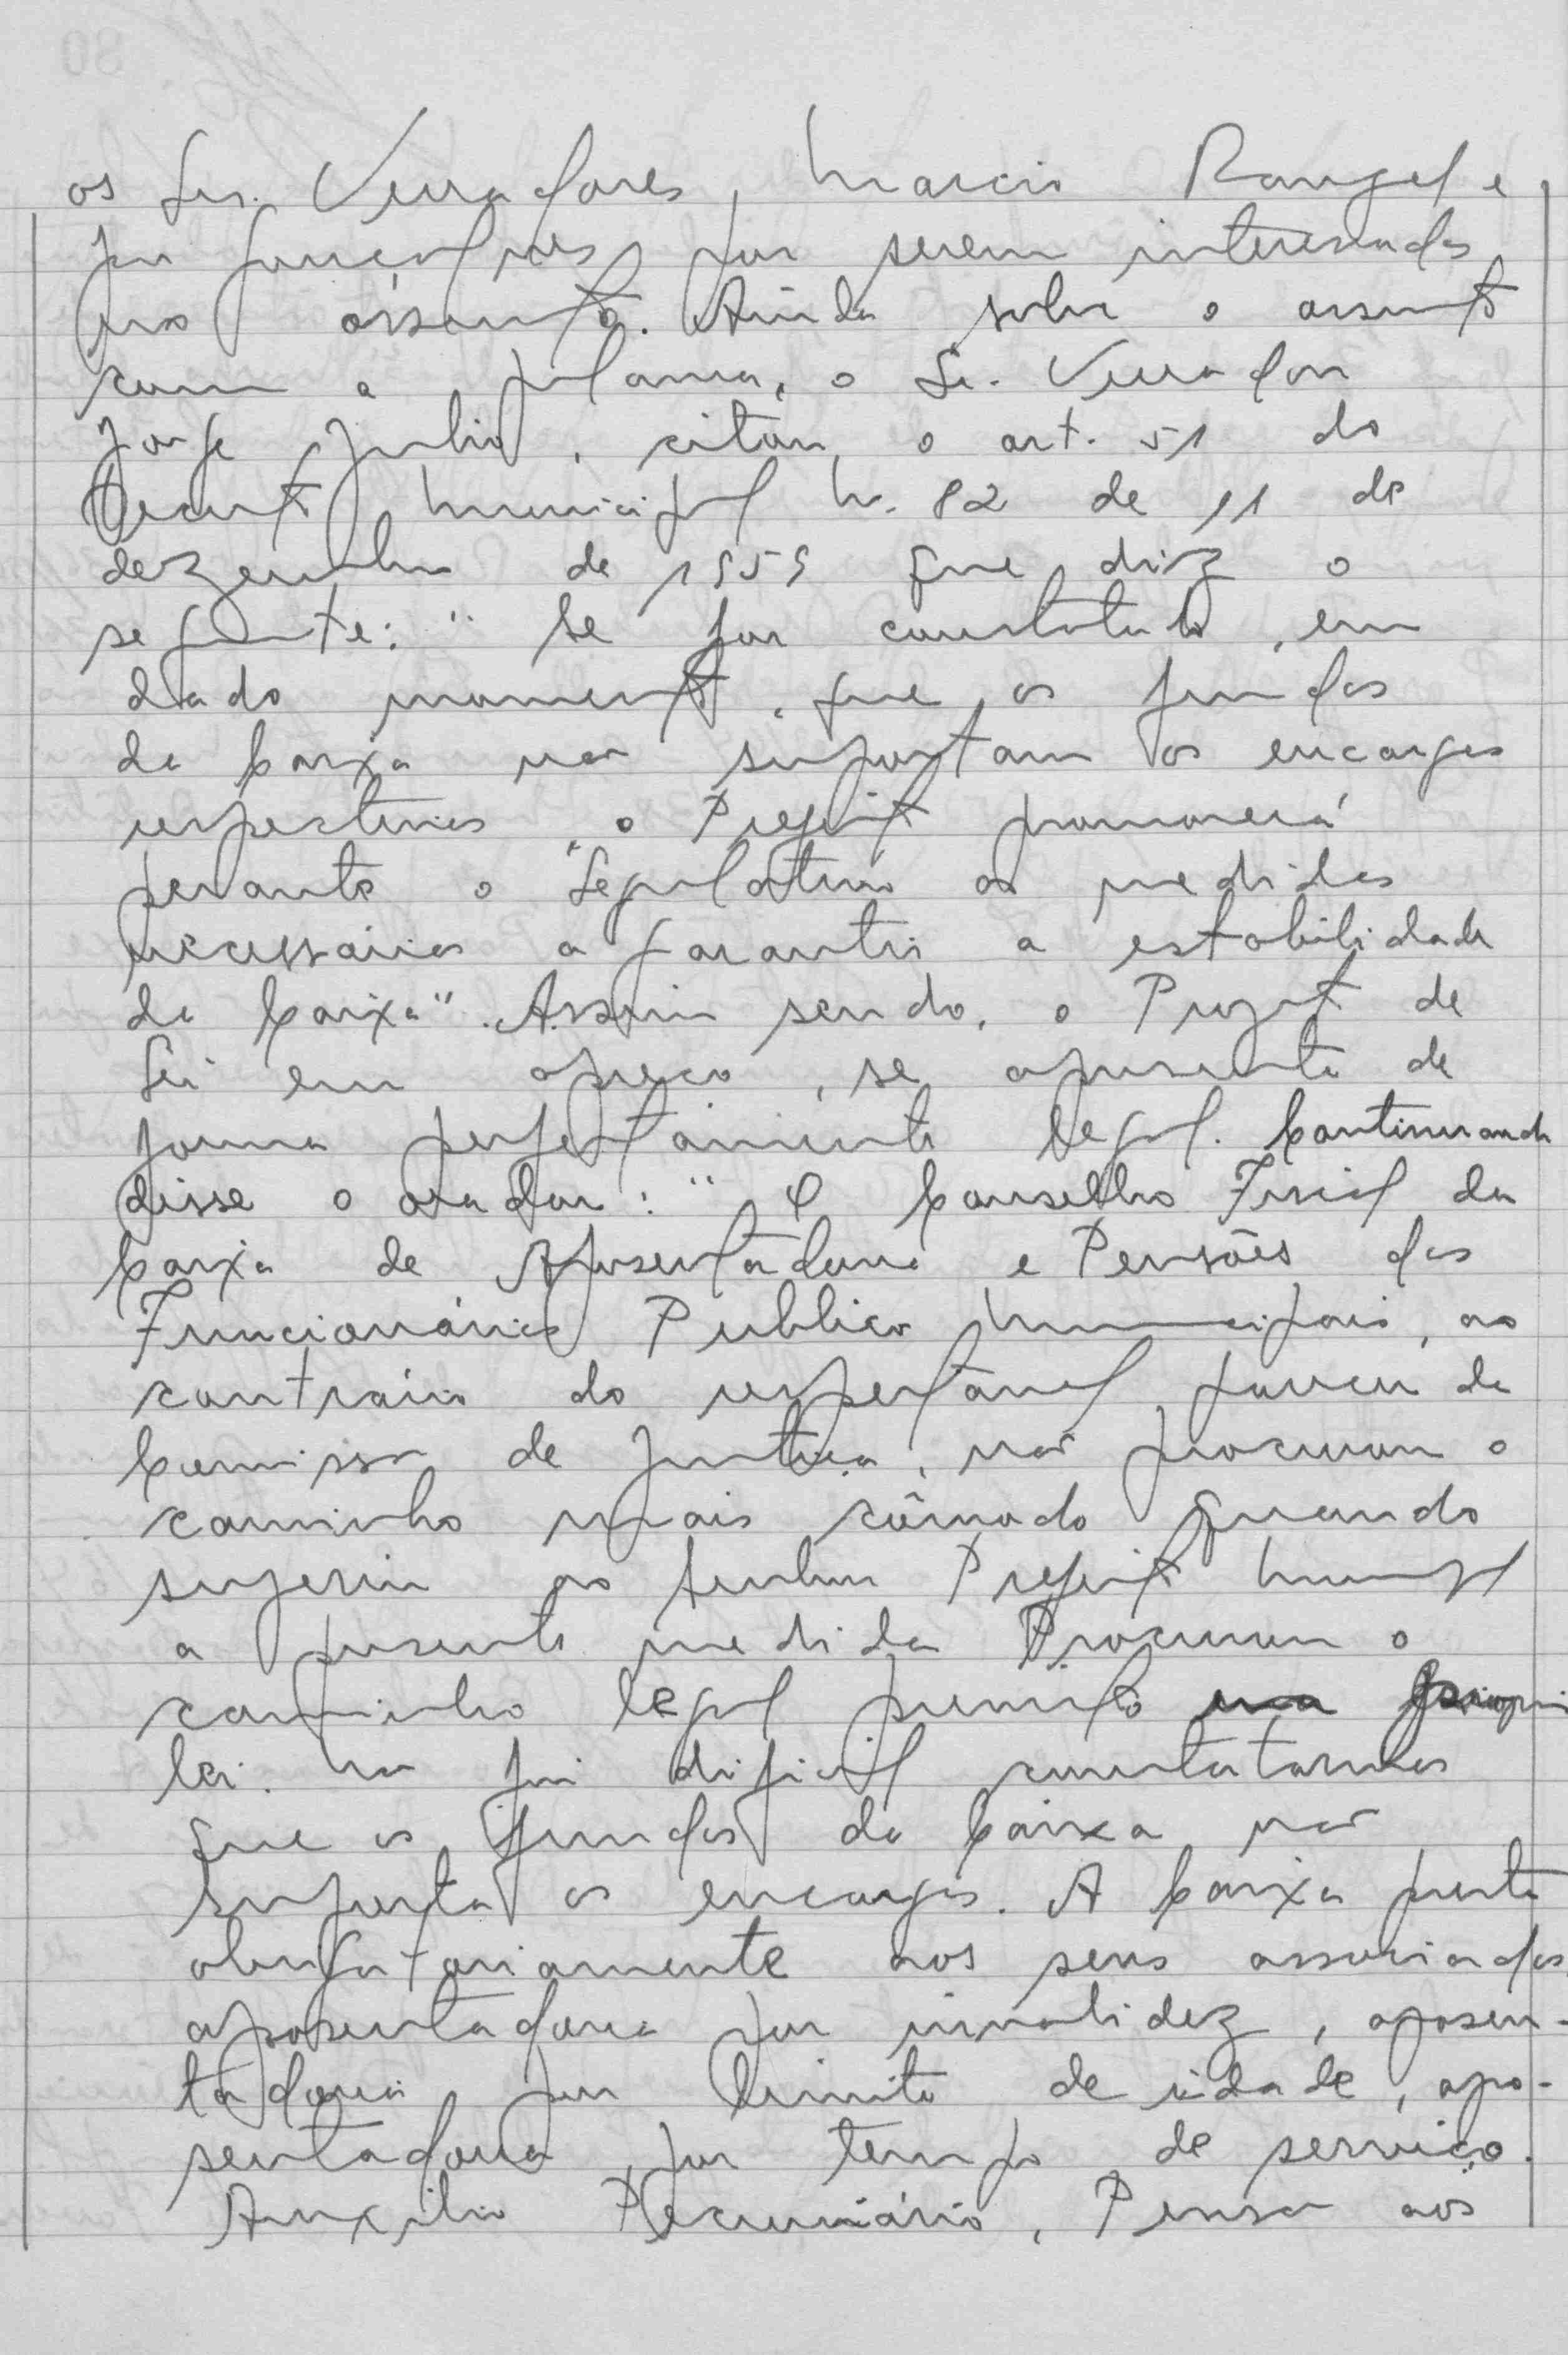 os Srs. Vereadores, Marcio Rangel e
Gonçalves, por serem interessados
no assunto. Ainda sobre o assunto
com a palavra, o Sr. Vereador
Jorge Julio, citou o art. 51 do
Decreto Municipal n. 82 de 11 de
dezembro de 1959 que diz o
seguinte: "Se for constatado, em
dado momento, que os fundos
da Caixa não suportam os encargos
respectivos, o Prefeito promoverá
perante o Legislativo as medidas
necessárias a garantir a estabilidade
da Caixa". Assim sendo, o Projeto de
Lei em apreço, se apresenta de
forma perfeitamente legal. Continuando
disse o orador: "O Conselho Fiscal da
Caixa de Aposentadoria e Pensões dos
Funcionários Publicos Municipais, ao
contrário do respeitável parecer da
Comissão de Justiça, não procurou o
caminho mais cômodo quando
sugeriu ao Senhor Prefeito Municipal
a presente medida. Procurou o
caminho legal previsto na própria
lei. Não foi dificil constatarmos
que os fundos da Caixa não
suporta os encargos. A Caixa presta
obrigatoriamente aos seus associados
aposentadoria por invalidez, aposen-
tadoria por limite de idade, apo-
sentadoria por tempo de serviço.
Auxilio Pecuniário, Pensão aos